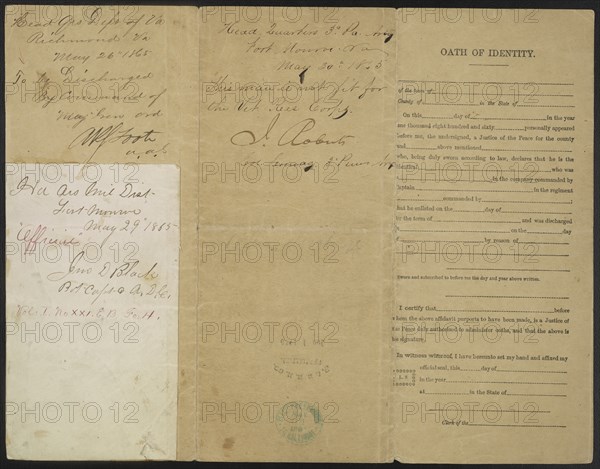 Head Qrs Dept of Va
Richmond Va
May 26" 1865
To be Discharged
By Command of
Maj Genl Ord
A.A.G.
Hd Qrs Mil Dist
Fort Monroe
May 29" 1865
"Official"
Jno D Black
Bvt Capt & A.
Head Quarters 3d Pa Arty
Fort Monroe Va
May 20th 1865
This man is not fit for
the Vet Res Corps.
J. Roberts
3d Penn Arty
OATH OF IDENTITY.
of the town of
County of in the State of
On this day of in the year
one thousand eight hundred and sixty personally appeared
before me, the undersigned, a Justice of the Peace for the county
and above mentioned
who, being duly sworn according to law, declares that he is the
who was
in the company commanded by
Captain in the regiment
commanded by
that he enlisted on the day of
for the term of and was discharged
at on the day
of by reason of
Sworn and subscribed to before me the day and year above written.
I certify that before
whom the above affidavit purports to have been made, is a Justice of
the Peace duly authorized to administer oaths, and that the above is
his signature.
In witness whereof, I have hereunto set my hand and affixed my
official seal, this day of
in the year
at in the State of
Clerk of the
PHOTO 12